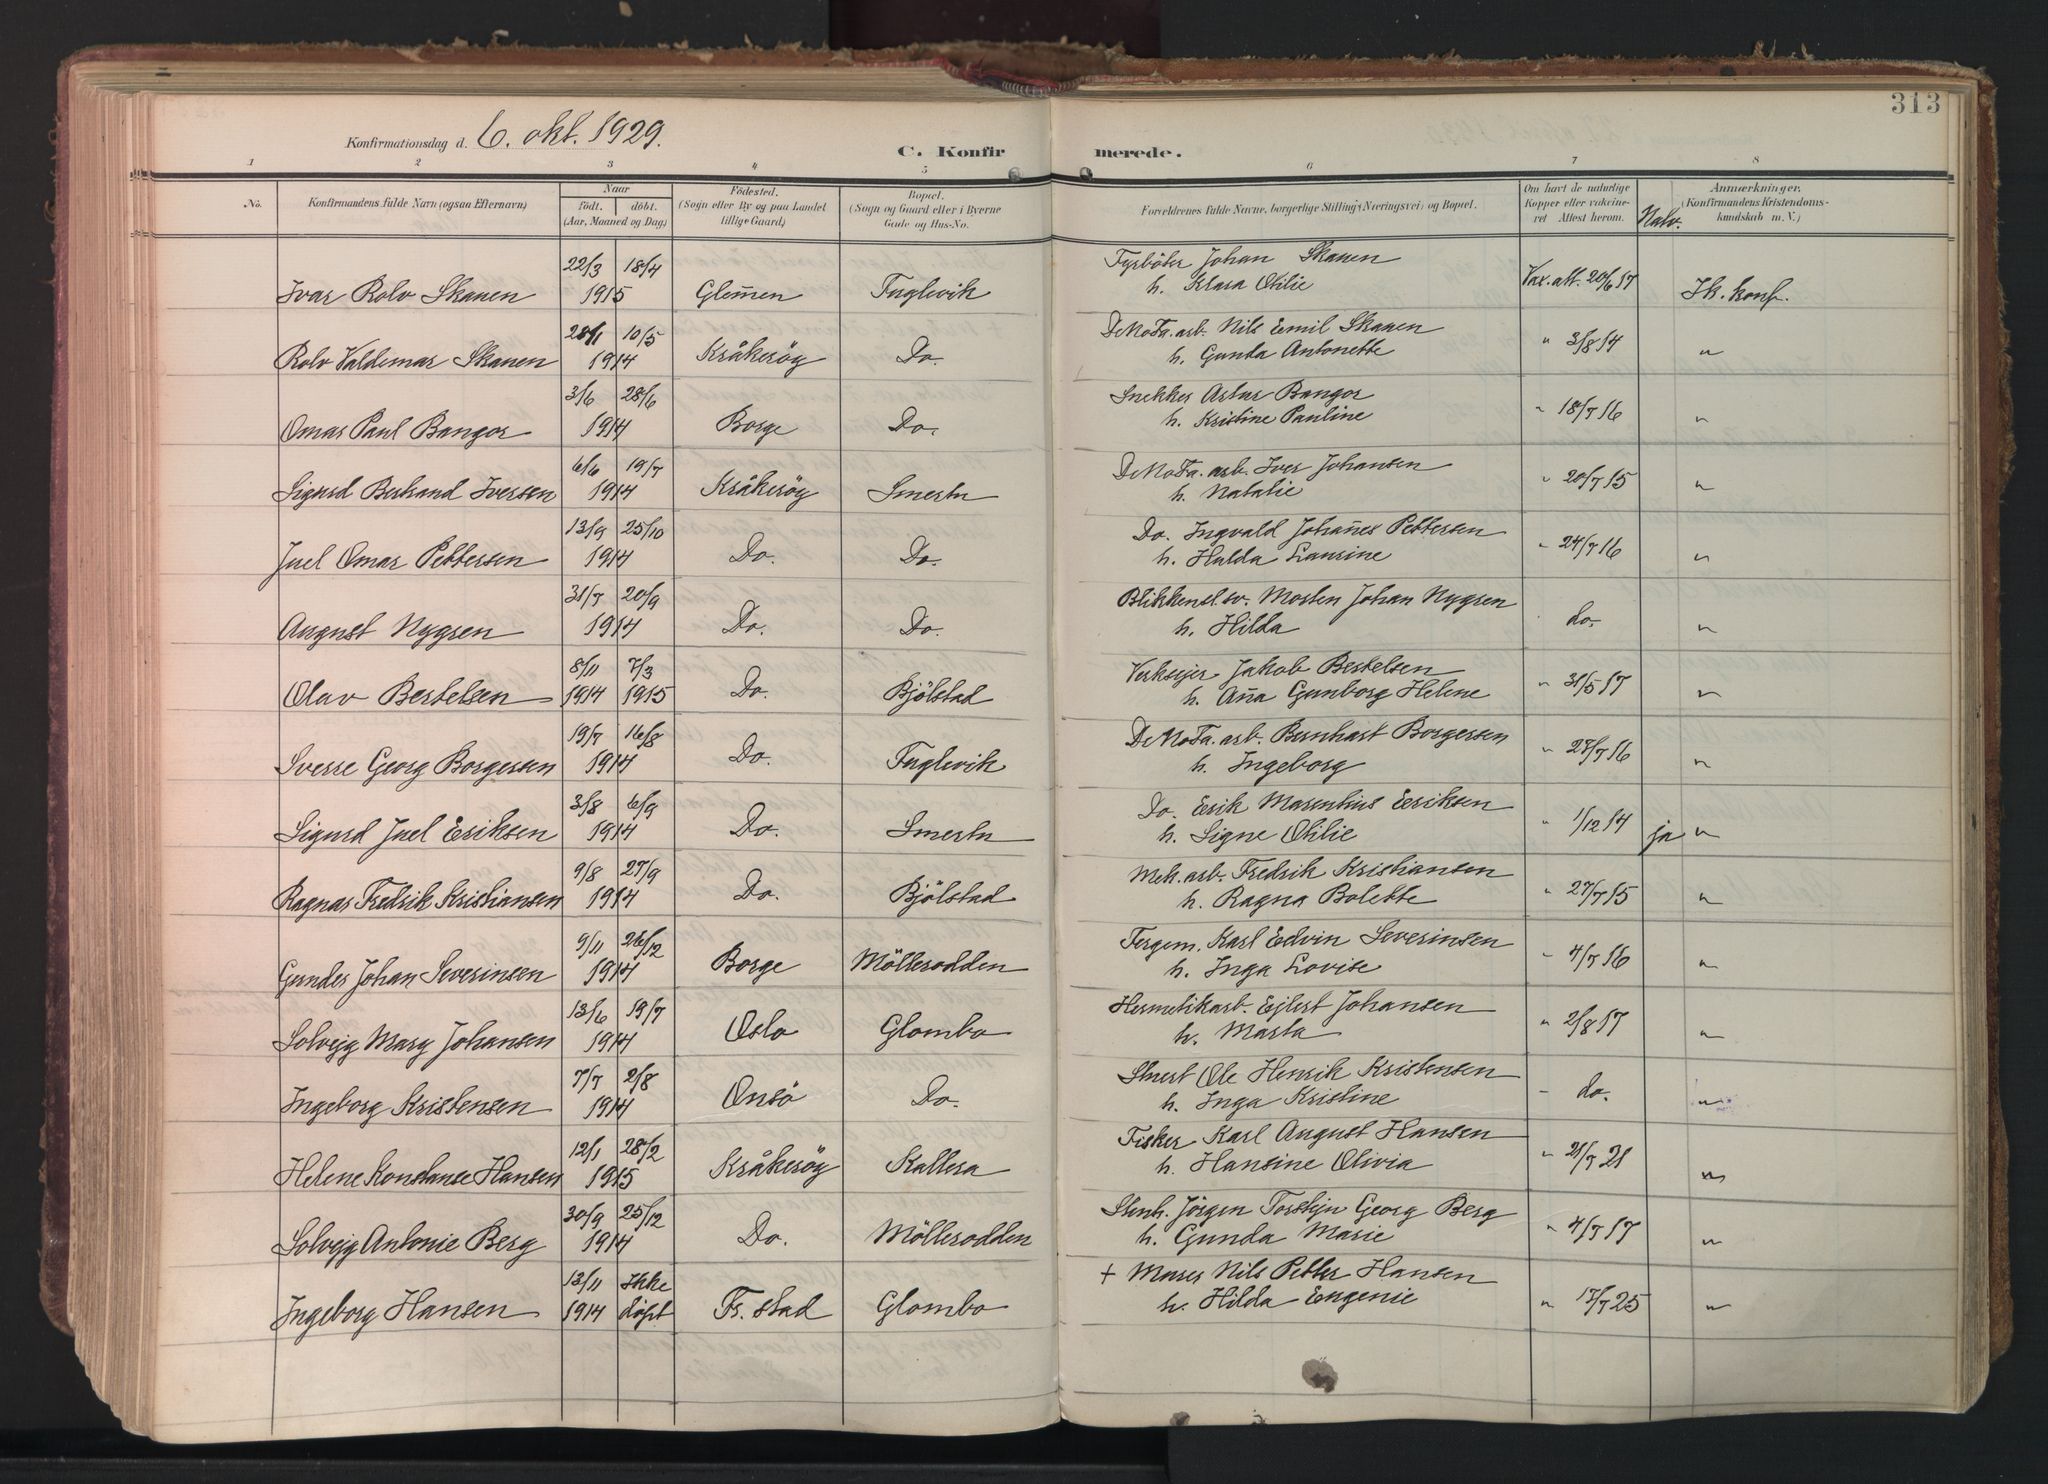 313
Konfirmationsdag d. 6. okt. 1929.
C. Konfir merede.
1 2 3 4 5 6 7 8
No. Konfirmandens fulde Navn (ogsaa Efternavn)
Naar født. døbt. (Aar, Maaned og Dag)
Fødested. (Sogn eller By og paa Landet tillige Gaard)
Bopæl. (Sogn og Gaard eller i Byerne Gade og Hus-No.
Forældrenes fulde Navne, borgerlige Stilling (Næringsvei) og Bopæl.
Om havt de naturlige Kopper eller vakcineret Attest herom.
Anmærkninger. (Konfirmandens Kristendomskundskab m. V.)
22/3 18/4 Fyrböter Johan Skauen
Ivar Rolv Skauen 1915 Glem̃en Fuglevik h. Klara Otilie Vax. att. 20/6 17 Ik. konf.
28/1 10/5 DeNoFa. arb. Nils Emil Skauen
Rolv Valdemar Skauen 1914 Kråkeröy Do. h. Gunda Antonette " 3/8 14 "
3/6 28/6 Snekker Artur Bangor
Omar Paul Bangor 1914 Borge Do. h. Kristine Pauline " 18/7 16 "
6/6 19/7 DeNoFa. arb. Iver Johansen
Sigurd Bertrand Iversen 1914 Kråkeröy Smertu h. Natalie " 20/7 15 "
13/9 25/10 Do. Ingvald Johan̄es Pettersen
Juel Omar Pettersen 1914 Do. Do. h. Hulda Laurine " 24/7 16 "
31/7 20/9 Blikkensl. sv. Morten Johan Nygren
August Nygren 1914 Do. Do. h. Hilda do. "
8/11 7/3 Verksejer Jakob Bertelsen
Olav Bertelsen 1914 1915 Do. Bjölstad h. An̄a Gunborg Helene " 31/5 17 "
19/7 16/8 DeNoFa. arb. Bernhart Borgersen
Sverre Georg Borgersen 1914 Do. Fuglevik h. Ingeborg " 27/7 16 "
3/8 6/9 Do. Erik Marentius Eriksen
Sigurd Juel Eriksen 1914 Do. Smertu h. Signe Otilie " 1/12 14 ja "
9/8 27/9 Mek. arb. Fredrik Kristiansen
Ragnar Fredrik Kristiansen 1914 Do. Bjölstad h. Ragna Bolette " 27/7 15 "
9/11 26/12 Fergem. Karl Edvin Severinsen
Gunder Johan Severinsen 1914 Borge Möllerodden h. Inga Lovise " 4/7 16 "
13/6 19/7 Hermetikarb. Ejlert Johansen
Solvejg Mary Johansen 1914 Oslo Glombo h. Marta " 2/8 17 "
7/7 2/8 Stuert Ole Henrik Kristensen
Ingeborg Kristensen 1914 Onsö Do. h. Inga Kristine " do. "
12/1 28/2 Fisker Karl August Hansen
Helene Konstanse Hansen 1915 Kråkeröy Kallera h. Hansine Olivia " 21/7 21 "
30/9 25/12 Stenh. Jörgen Torstejn Georg Berg
Solvejg Antonie Berg 1914 Do. Möllerodden h. Gunda Marie " 4/7 17 "
13/11 Ikke + Murer Nils Petter Hansen
Ingeborg Hansen 1914 döpt Fr. stad Glombo h. Hilda Eugenie " 17/7 25 "